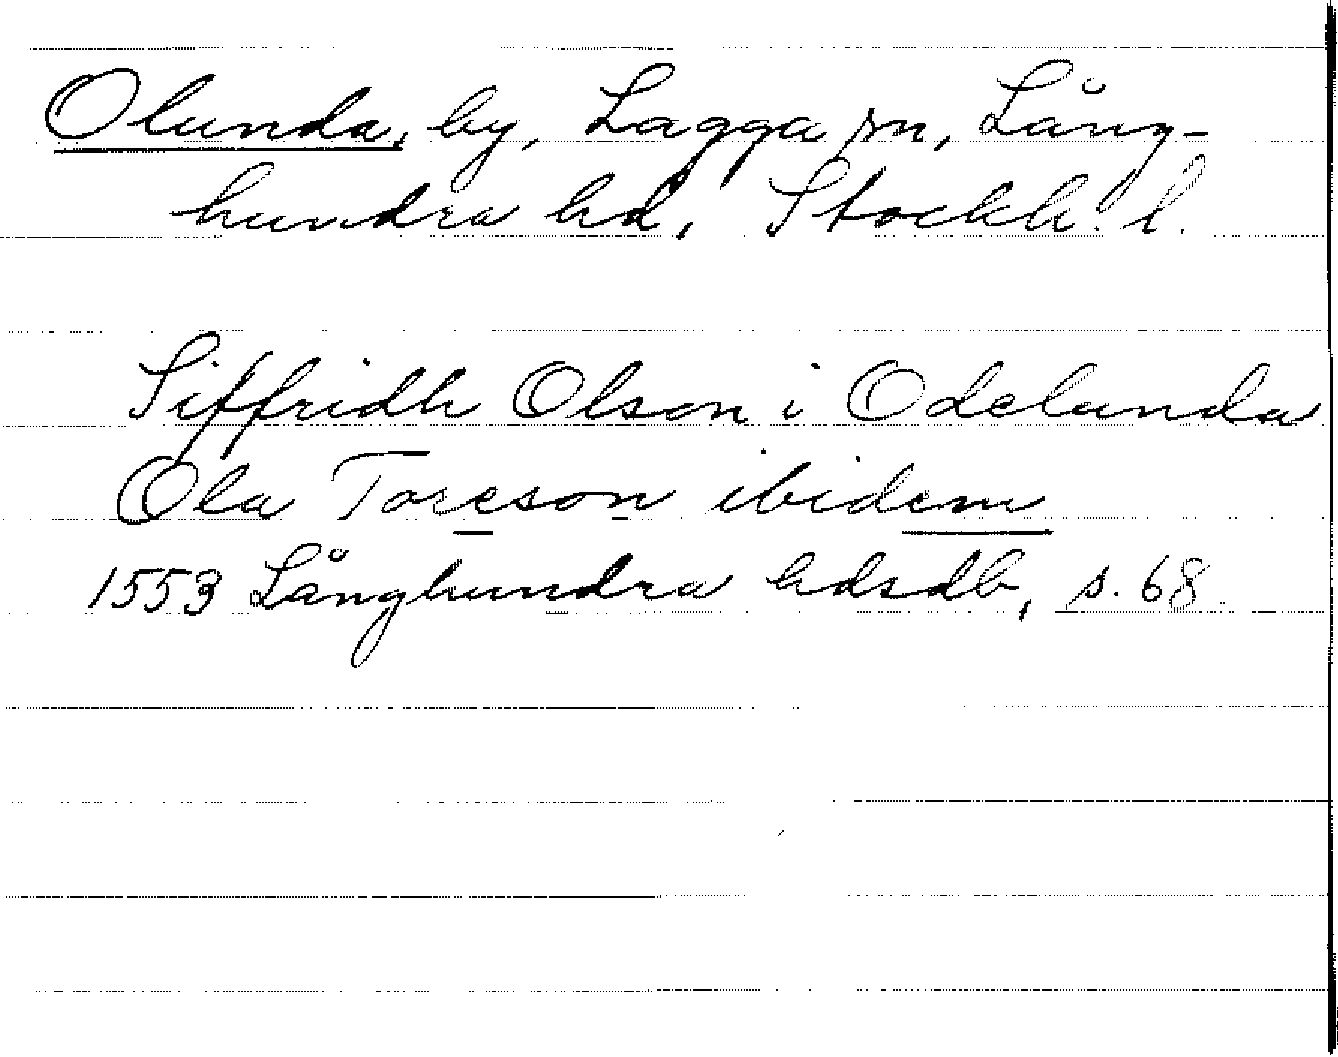 Olunda, by, Lagga sn, Lång-
hundra hd, Stockh. l.
Siffridh Olson i Odelunda
Ola Toreson ibidem
1553 Långhundra hdsdb, s. 68.